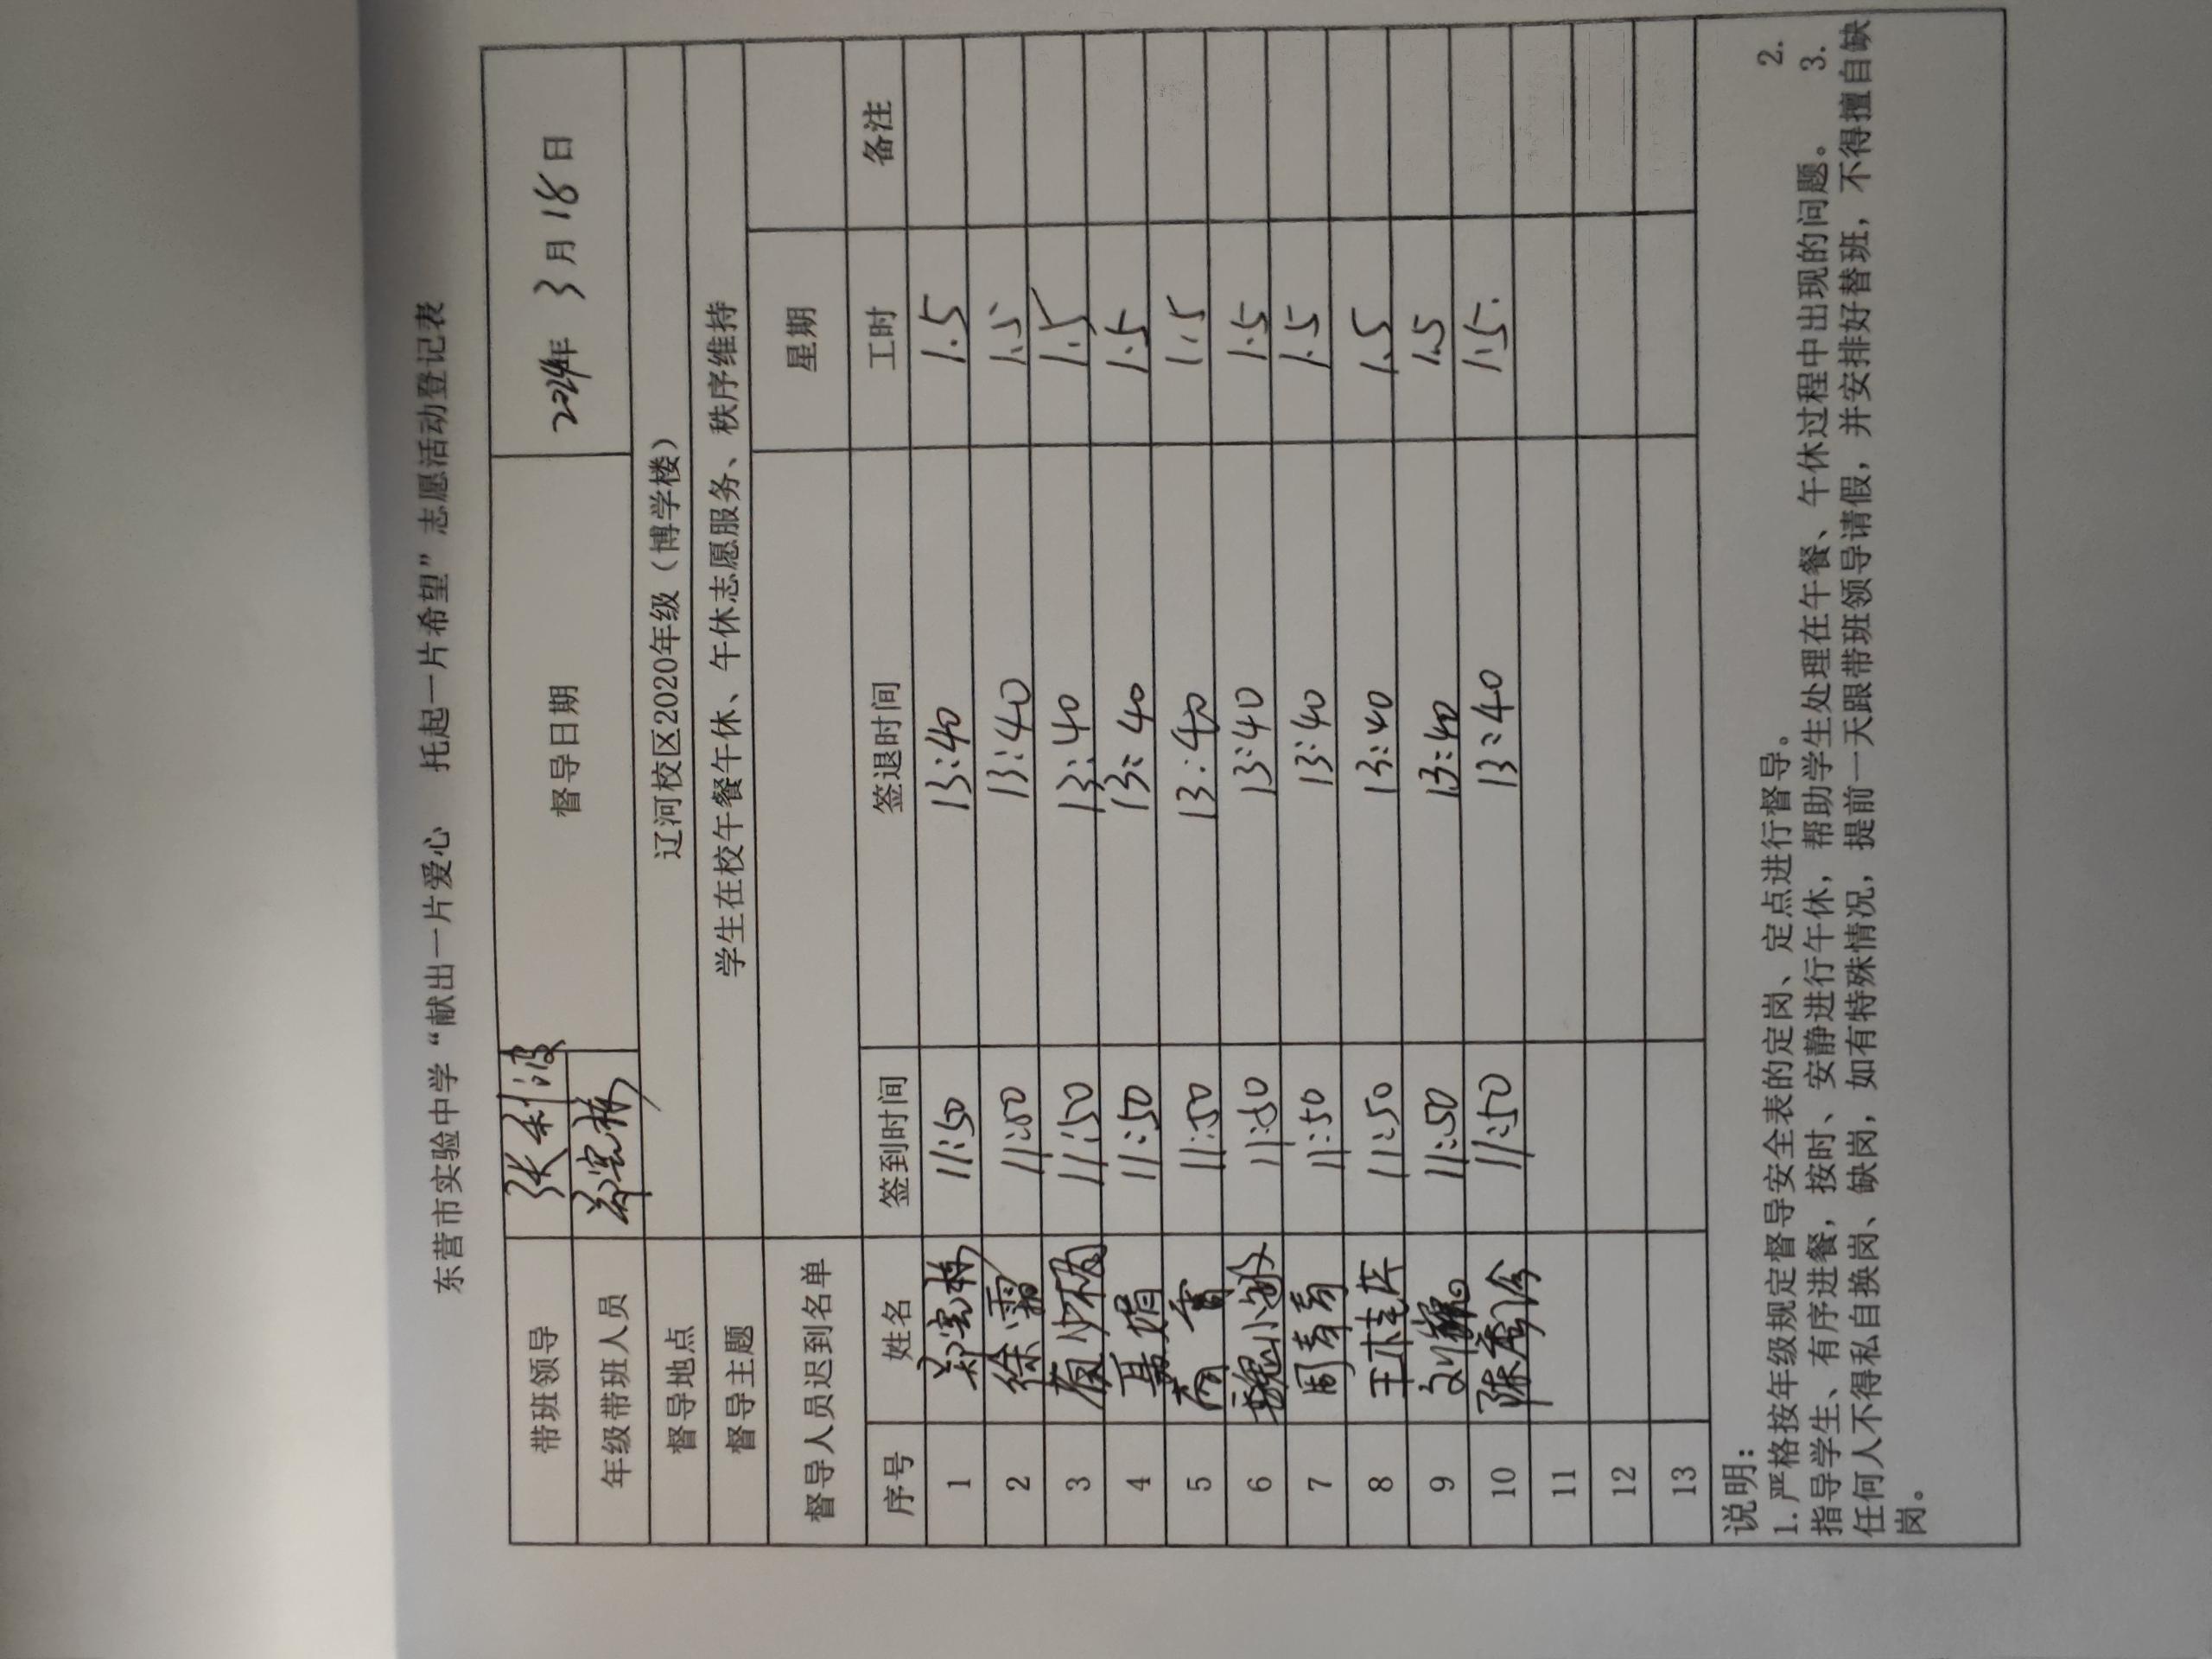 东营市实验中学“献出一片爱心 托起一片希望”志愿活动登记表
带班领导 张利波 督导日期 2024年 3月18日
年级带班人员 郑宪梅
督导地点 辽河校区2020年级（博学楼）
督导主题 学生在校午餐午休、午休志愿服务、秩序维持
督导人员迟到名单 星期
序号 姓名 签到时间 签退时间 工时 备注
1 郑宪梅 11:50 13:40 1.5
2 徐霜 11:50 13:40 1.5
3 11:50 13:40 1.5
4 聂娟 11:50 13:40 1.5
5 11:50 13:40 1.5
6 魏小敏 11:50 13:40 1.5
7 周寿 11:50 13:40 1.5
8 11:50 13:40 1.5
9 刘巍 11:50 13:40 1.5
10 陈秀今 11:50 13:40 1.5
11
12
13
说明：
1.严格按年级规定督导安全表的定岗、定点进行督导。 2.
指导学生、有序进餐，按时、安静进行午休，帮助学生处理在午餐、午休过程中出现的问题。 3.
任何人不得私自换岗、缺岗，如有特殊情况，提前一天跟带班领导请假，并安排好替班，不得擅自缺
岗。